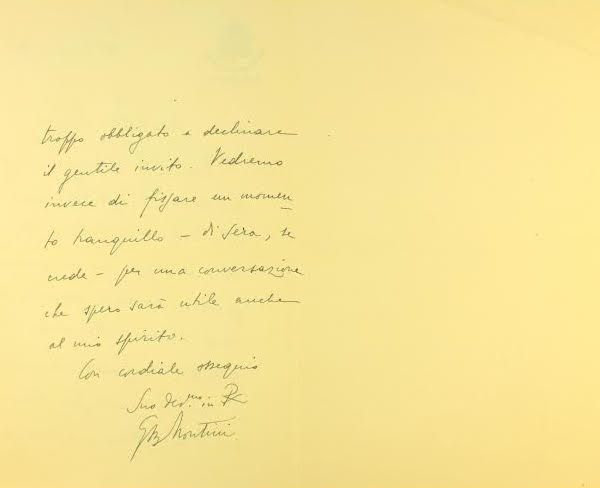 troppo obbligato a declinare
il gentile invito. Vedremo
invece di fissare un momen
to tranquillo – di sera, se
crede – per una conversazione
che spero sarà utile anche
al mio spirito.
Con cordiale ossequio
Suo dev.mo in
GBMontini